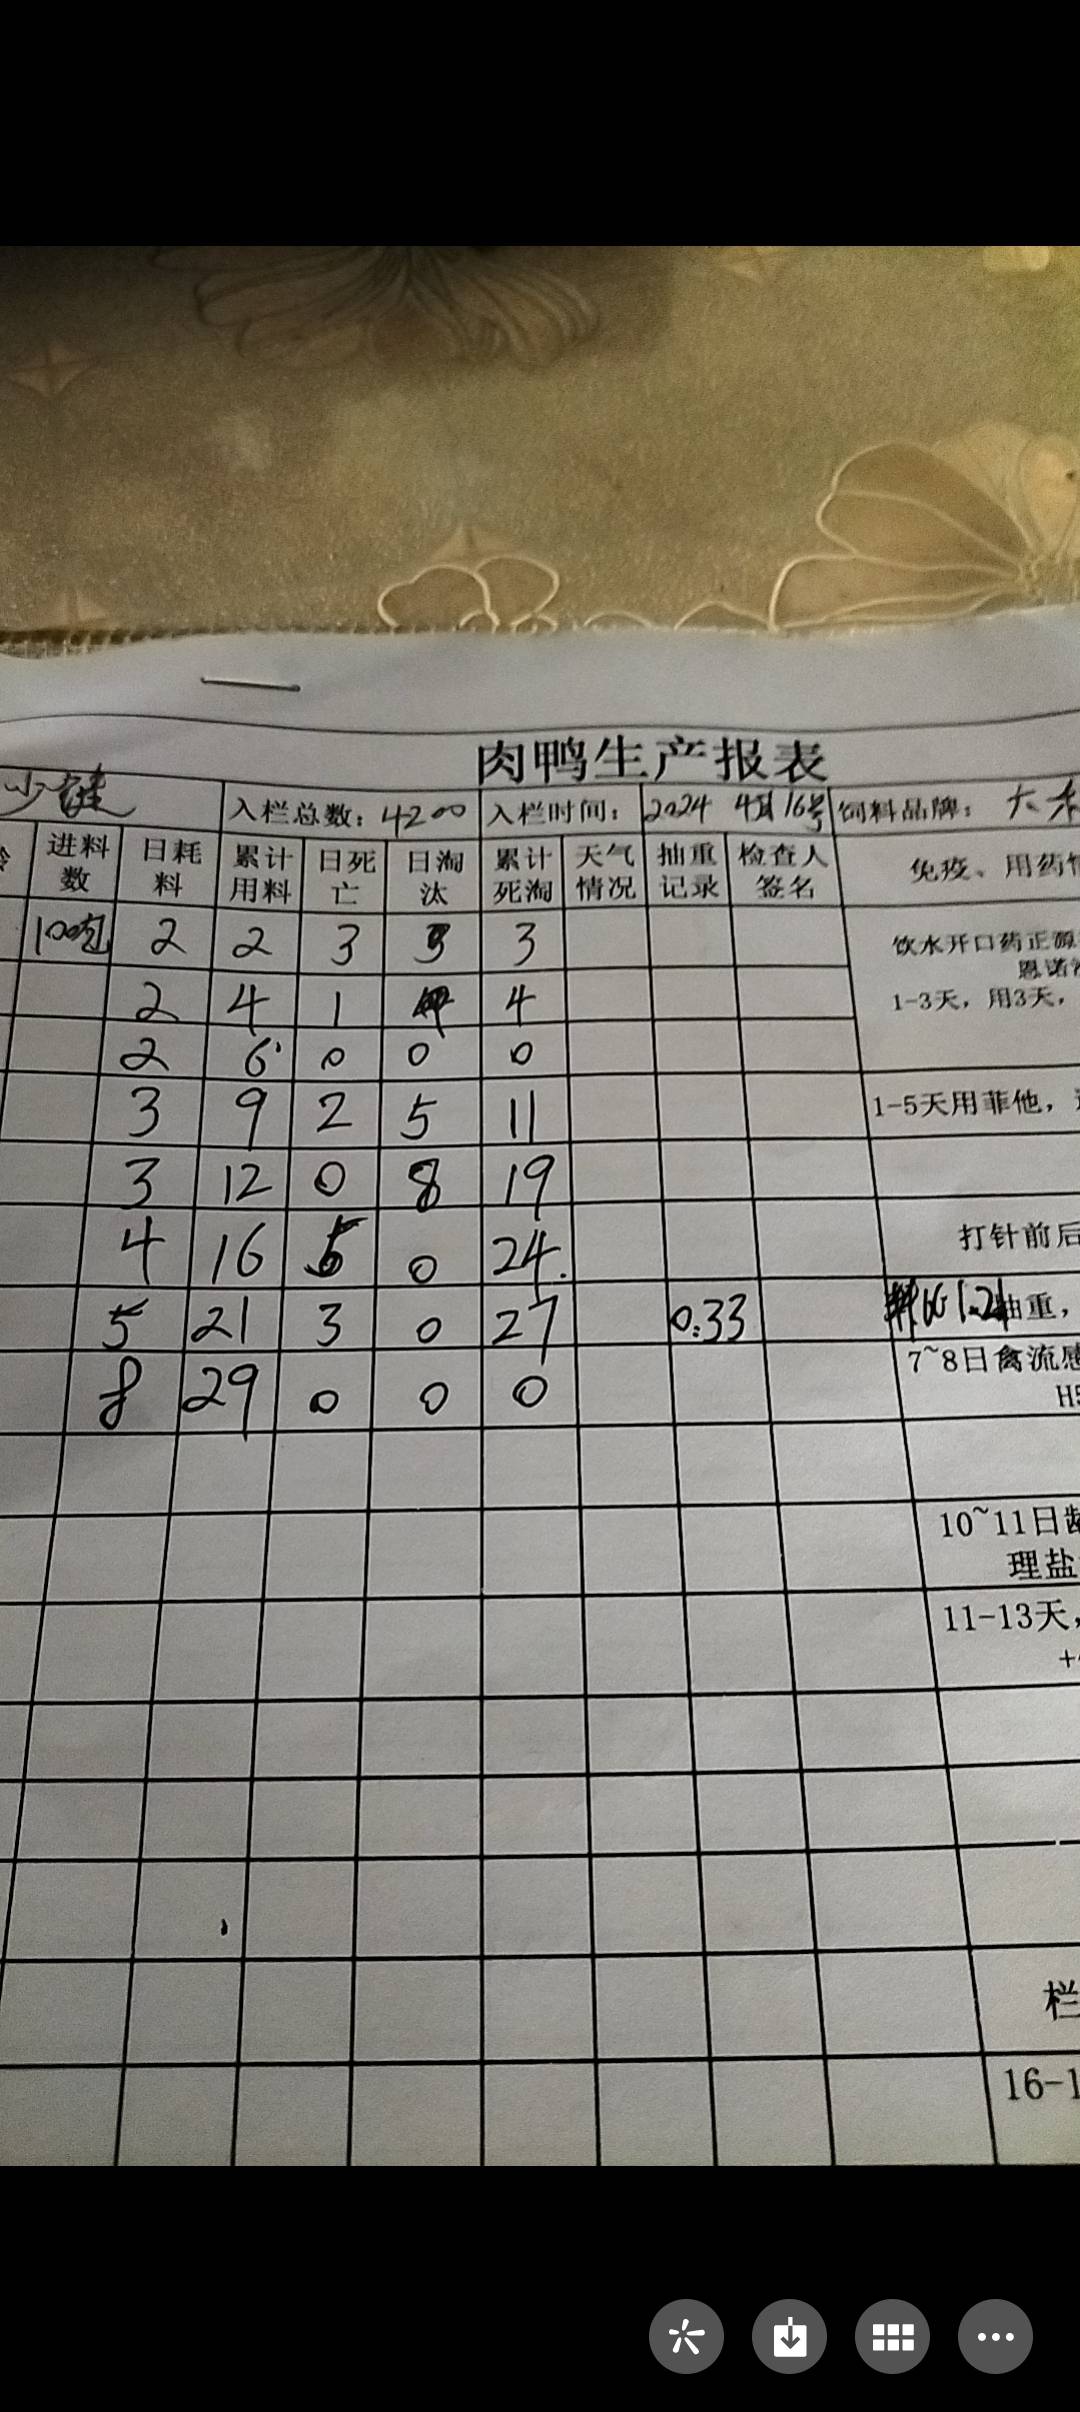 肉鸭生产报表
少 入栏总数：4200 入栏时间： 2024 4月16号 饲料品牌： 大禾
龄 进料数 日耗料 累计用料 日死亡 日淘汰 累计死淘 天气情况 抽重记录 检查人签名 免疫、用药情
100包 2 2 3 3 饮水开口药正源
恩诺沙
2 4 1 4 1-3天，用3天，
2 6 0 0 0
3 9 2 5 11 1-5天用菲他，
3 12 0 8 19
4 16 5 0 24. 打针前后
5 21 3 0 27 0.33 料比 抽重，
8 29 0 0 0 7~8日禽流感
H5
10~11日龄
理盐
11-13天，
+
栏
16-1